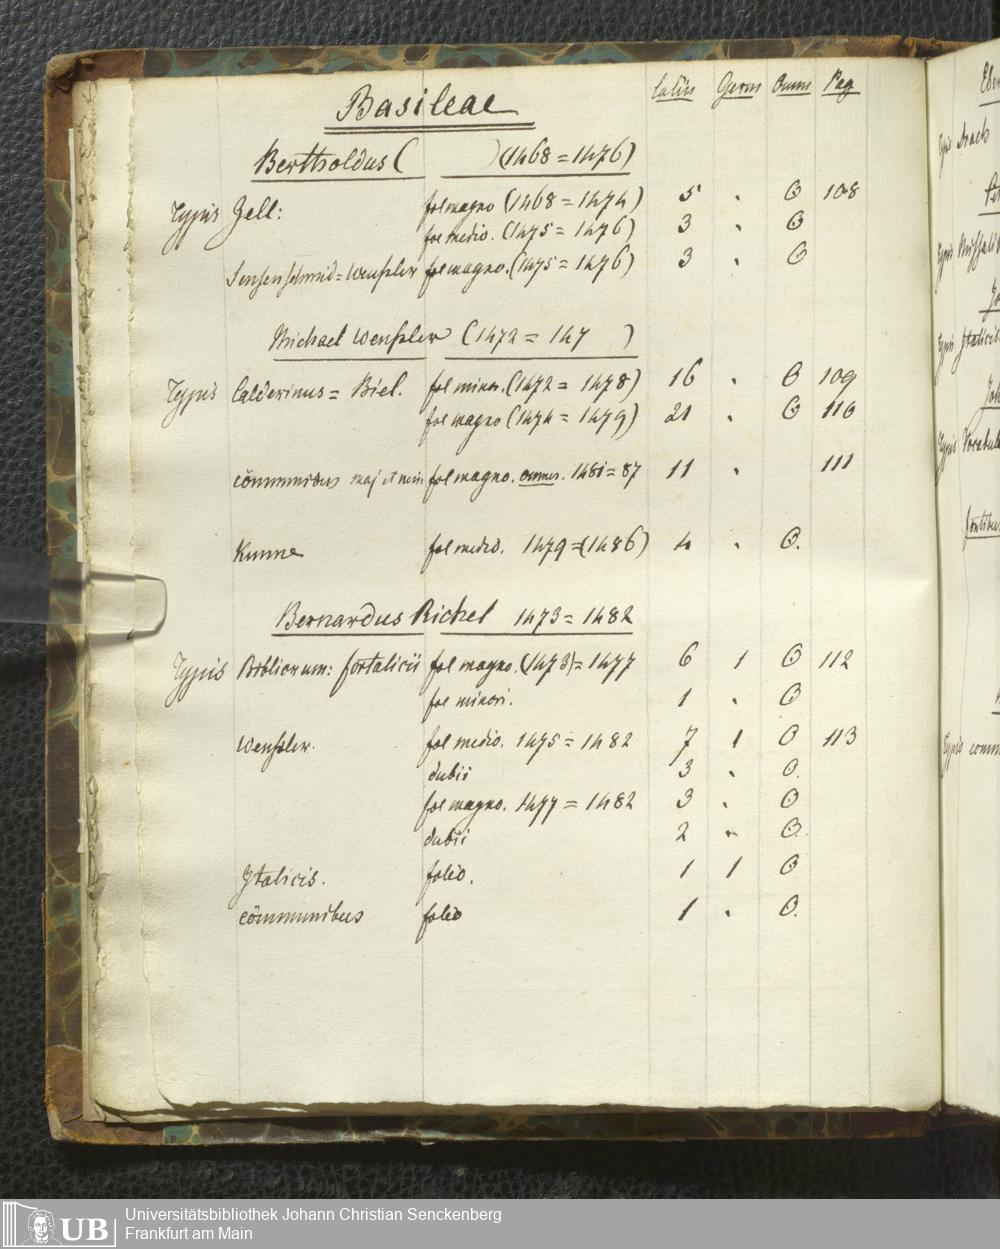 Basileae
Latin Germ Omns Pag
Bertholdus ( ) (1468=1476)
Typis Zell: fol magno (1468=1474) 5 . 0 108
fol medio. (1475=1476) 3 . 0
Sensenschmid=Wenssler fol magno. (1475=1476) 3 . 0
Michael Wenssler (1472=147 )
Typis Calderinus=Biel. fol minor. (1472=1478) 16 . 0 109
fol magno (1474=1479) 21 . 0 110
cōmmunibus maj et min fol magno. omnes. 1481=87 11 . 111
Kunne fol medio. 1479=(1486) 4 . 0.
Bernardus Richel 1473=1482
Typis Bibliorum: fortalicii fol magno. (1473)=1477 6 1 0 112
fol minori. 1 . 0
Wenssler. fol medio. 1475=1482 7 1 0 113
dubii 3 . 0.
fol magno. 1477=1482 3 . 0
dubii 2 . 0
Italicis. folio. 1 1 0
cōmmunibus folio 1 . 0.
Typis
Typis
Typis Italicis
Typis Vocabul
Typis comm
UB
Universitätsbibliothek Johann Christian Senckenberg
Frankfurt am Main